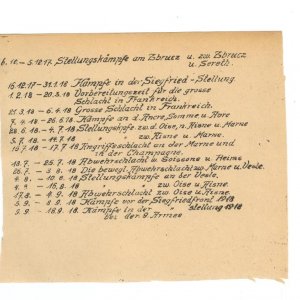 6.12. - 5.12.17. Stellungskämpfe am Zbrucz u. zw. Zbrucz
u. Sereth.
15.12.17 - 31.1.18 Kämpfe in der Siegfried-Stellung.
1.2.18 - 20.3.18 Vorbereitungszeit für die grosse
Schlacht in Frankreich.
21.3.18 - 6.4.18 Grosse Schlacht in Frankreich.
4.18 Kämpfe an d. Ancre, Somme u. Avre
4.18 - 4.7.18 Stellungskpfe zw. Oise, u. Marne
5.7.18 - 14.7.18 " zw. Aisne u. Marne.
.7.18 - 17.7.18 Angriffsschlacht an der Marne und
in der Champagne.
18.7. - 25.7.18 Abwehrschlacht zw. Soissons u. Reims
26.7. - 3.8.18 Die bewegl. Abwehrschlacht zw. Marne u. Vesle.
4.8. - 18 Stellungskämpfe an der Vesle.
8. - 18 " zw. Oise u. Aisne.
17.8. - 4.9.18 Abwehrschlacht zw. Oise u. Aisne.
9. - 8.9.18 Kämpfe vor der Siegfriedfront 1918
9.9. - 18.9.18 Kämpfe in der " stellung 1918
bei der 9. Armee